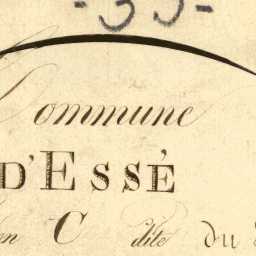 -35-
Commune
D'ESSÉ
on C dite du